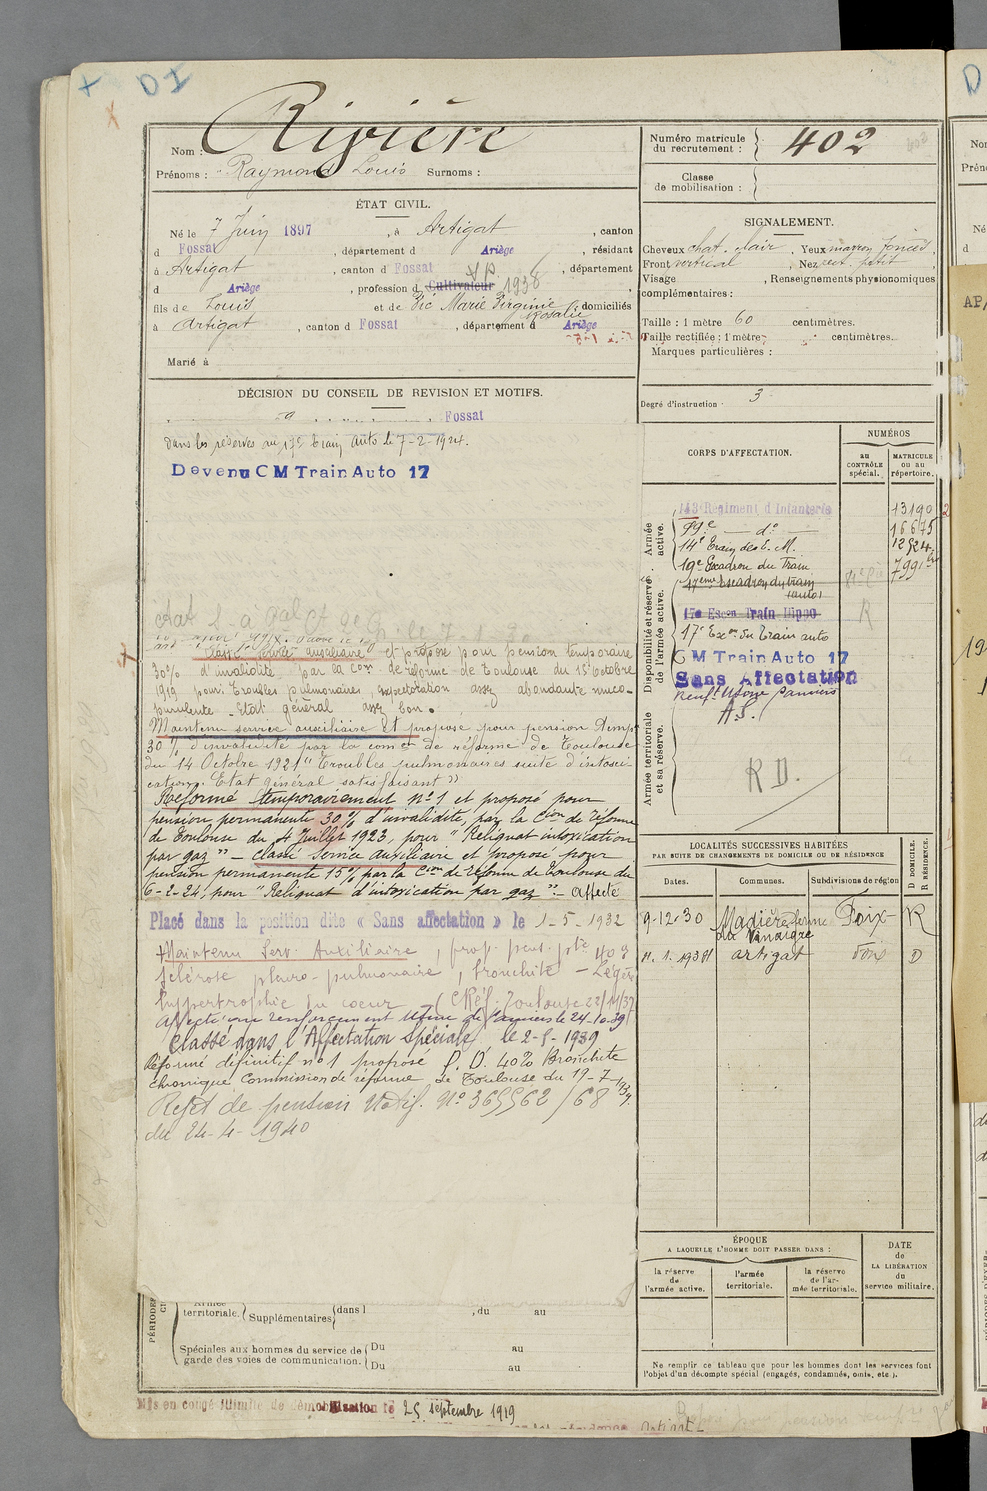 + D I
Rivière
Nom :
Prénoms : Raymond Louis Surnoms :
Numéro matricule
du recrutement : 402
Classe
de mobilisation :
ÉTAT CIVIL.
Né le 7 Juin 1897, à Artigat, canton
d Fossat, département d Ariège, résidant
à Artigat, canton d Fossat, département
d Ariège, profession d Cultivateur 1938
fils de Louis et de Pic Marie Virginie Rosalie, domiciliés
à Artigat, canton d Fossat, département d Ariège
Marié à
SIGNALEMENT.
Cheveux chat. clair, Yeux marron foncés
Front vertical, Nez rect. petit
Visage , Renseignements physionomiques
complémentaires :
Taille : 1 mètre 60 centimètres.
Taille rectifiée : 1 mètre centimètres.
Marques particulières :
Degré d'instruction : 3
DÉCISION DU CONSEIL DE REVISION ET MOTIFS.
Fossat
dans les réserves au 17e Train auto le 7-2-1924.
Devenu CM Train Auto 17
Classé service auxiliaire et proposé pour pension temporaire
30% d'invalidité par la Con de réforme de Toulouse du 15 Octobre
1919 pour: Troubles pulmonaires, expectoration assez abondante muco-
purulente - Etat général assez bon.
Maintenu service auxiliaire et proposé pour pension temp
30% d'invalidité par la comon de réforme de Toulouse
du 14 Octobre 1921 "Troubles pulmonaires suite d'intoxi
cation. Etat général satisfaisant"
Réformé temporairement n°1 et proposé pour
pension permanente 30% d'invalidité, par la Cion de réforme
de Toulouse du 4 Juillet 1923, pour "Reliquat intoxication
par gaz" - classé service auxiliaire et proposé pour
pension permanente 15% par la Cion de réforme de Toulouse du
6-2-24, pour "Reliquat d'intoxication par gaz". - Affecté
Placé dans la position dite « Sans affectation » le 1-5-1932
Maintenu Serv. Auxiliaire, prop. pens. pte
Sclérose pleuro-pulmonaire, bronchite - Légère
hypertrophie du coeur (C Réf. Toulouse
Affecté au renforcement Usine de Pamiers le 24-10-39
Classé dans l'Affectation Spéciale, le 2-9-1939
Réformé définitif n°1 proposé P. D. 40% Bronchite
chronique Commission de réforme de Toulouse du 19-7-
Rejet de pension Notif. N° 365562 / 68
du 24-4-1940
CORPS D'AFFECTATION.
NUMÉROS
au
CONTRÔLE
spécial.
MATRICULE
ou au
répertoire.
Armée
active.
143 Régiment d'Infanterie 13190
99e — do — 16675
14e Train des E. M. 12524
19e Escadron du Train
17eme Escadron du train
(auto)
Disponibilité et réserve
de l'armée active.
17e Escon Train Hippo
17e Escon du Train auto
C M Train Auto 17
Sans Affectation
Renft Usine Pamiers
A.S.
R
Armée territoriale
et sa réserve.
R D.
LOCALITÉS SUCCESSIVES HABITÉES
PAR SUITE DE CHANGEMENTS DE DOMICILE OU DE RÉSIDENCE
D DOMICILE.
R RÉSIDENCE.
Dates. Communes. Subdivisions de région
9-12-30 Madière ferme du Vinaigre Foix R
11.1.1938 Artigat Foix D
ÉPOQUE
A LAQUELLE L'HOMME DOIT PASSER DANS :
la réserve
de
l'armée active.
l'armée
territoriale.
la réserve
de l'ar-
mée territoriale.
DATE
de
LA LIBÉRATION
du
service militaire.
PÉRIODES
territoriale. Supplémentaires (dans l , du au
Spéciales aux hommes du service de
garde des voies de communication.
Du au
Du au
Ne remplir ce tableau que pour les hommes dont les services font
l'objet d'un décompte spécial (engagés, condamnés, omis, etc.).
Mis en congé illimité de démobilisation le 25 septembre 1919